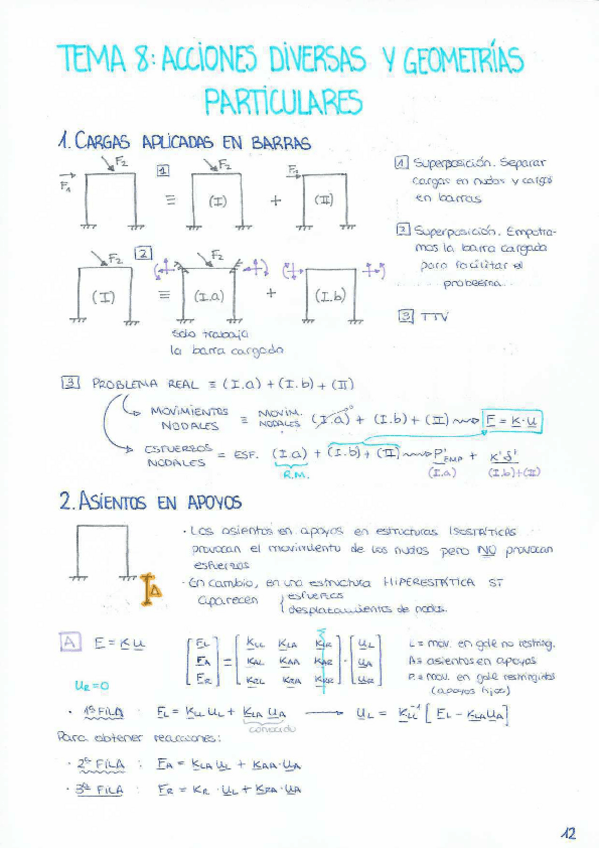 TEMA 8: ACCIONES DIVERSAS Y GEOMETRÍAS
PARTICULARES
1. CARGAS APLICADAS EN BARRAS
F1 F2 1 F2 F1
≡ (I) + (II)
1 Superposición. Separar
cargas en nudos y carga
en barras
2 Superposición. Empotra-
mos la barra cargada
para facilitar el
problema.
3 TTV
F2 2 F2
(I) ≡ (I.a) + (I.b)
Solo trabaja
la barra cargada
3 PROBLEMA REAL ≡ (I.a) + (I.b) + (II)
MOVIMIENTOS NODALES ≡ MOVIM. NODALES (I.a) 0 + (I.b) + (II) F = K·U
ESFUERZOS NODALES = ESF. (I.a) + (I.b) + (II) P'EMP + K'δ'
R.M. (I.a) (I.b)+(II)
2. ASIENTOS EN APOYOS
Δ
· Los asientos en apoyos en estructuras ISOSTÁTICAS
provocan el movimiento de los nudos pero NO provocan
esfuerzos
· En cambio, en una estructura HIPERESTÁTICA SÍ
aparecen { esfuerzos
desplazamientos de nudos.
A F = K U
[FL FA FR] = [KLL KLA KLR KAL KAA KAR KRL KRA KRR] · [UL UA UR]
L = mov. en gdlé no restring.
A = asientos en apoyos
R = mov. en gdlé restringidos
(apoyos fijos)
UR = 0
· 1ª FILA : FL = KLL UL + KLA UA → UL = KLL⁻¹ [FL - KLA UA]
conocido
Para obtener reacciones:
· 2ª FILA : FA = KLA UL + KAA·UA
· 3ª FILA : FR = KR · UL + KRA·UA
12